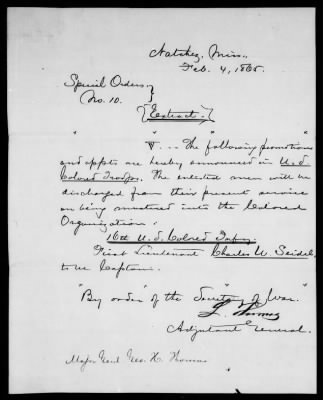 Natchez, Miss.
Feb. 4, 1865.
Special Orders. }
No. 10. }
{Extract.}
" " "
V... The following promotions
and appts are hereby announced in U.S.
Colored Troops. The enlisted men will be
discharged from their present service
on being mustered into the Colored
Organization:
16th U.S. Colored Infy.
First Lieutenant Charles W. Seidel,
to be Captain.
"By order" of the Secretary of War.
L. Thomas
Adjutant General.
Major Genl Geo. H. Thomas